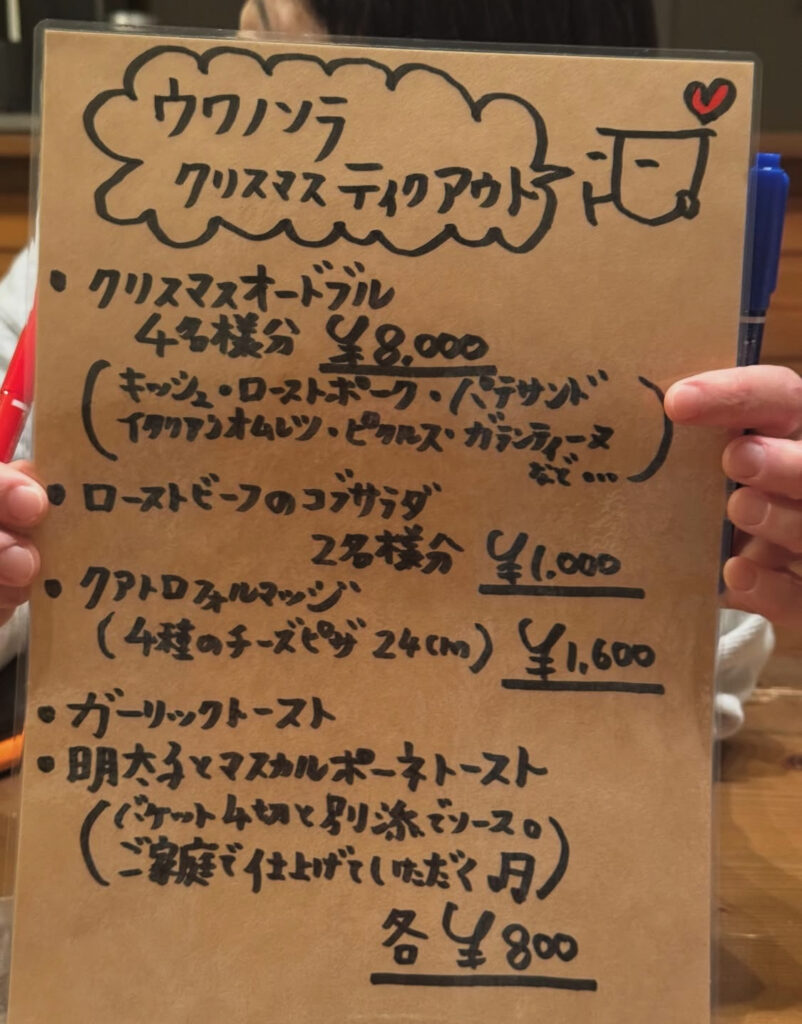 ウワノソラ
クリスマス テイクアウト
・クリスマスオードブル
4名様分 ¥8,000
(キッシュ・ローストポーク・パテサンド
イタリアンオムレツ・ピクルス・ガランティーヌ
など…)
・ローストビーフのコブサラダ
2名様分 ¥1,000
・クアトロフォルマッジ
(4種のチーズピザ 24cm) ¥1,600
・ガーリックトースト
・明太子とマスカルポーネトースト
(バケット4切と別添でソース。
ご家庭で仕上げていただく♫)
各 ¥800